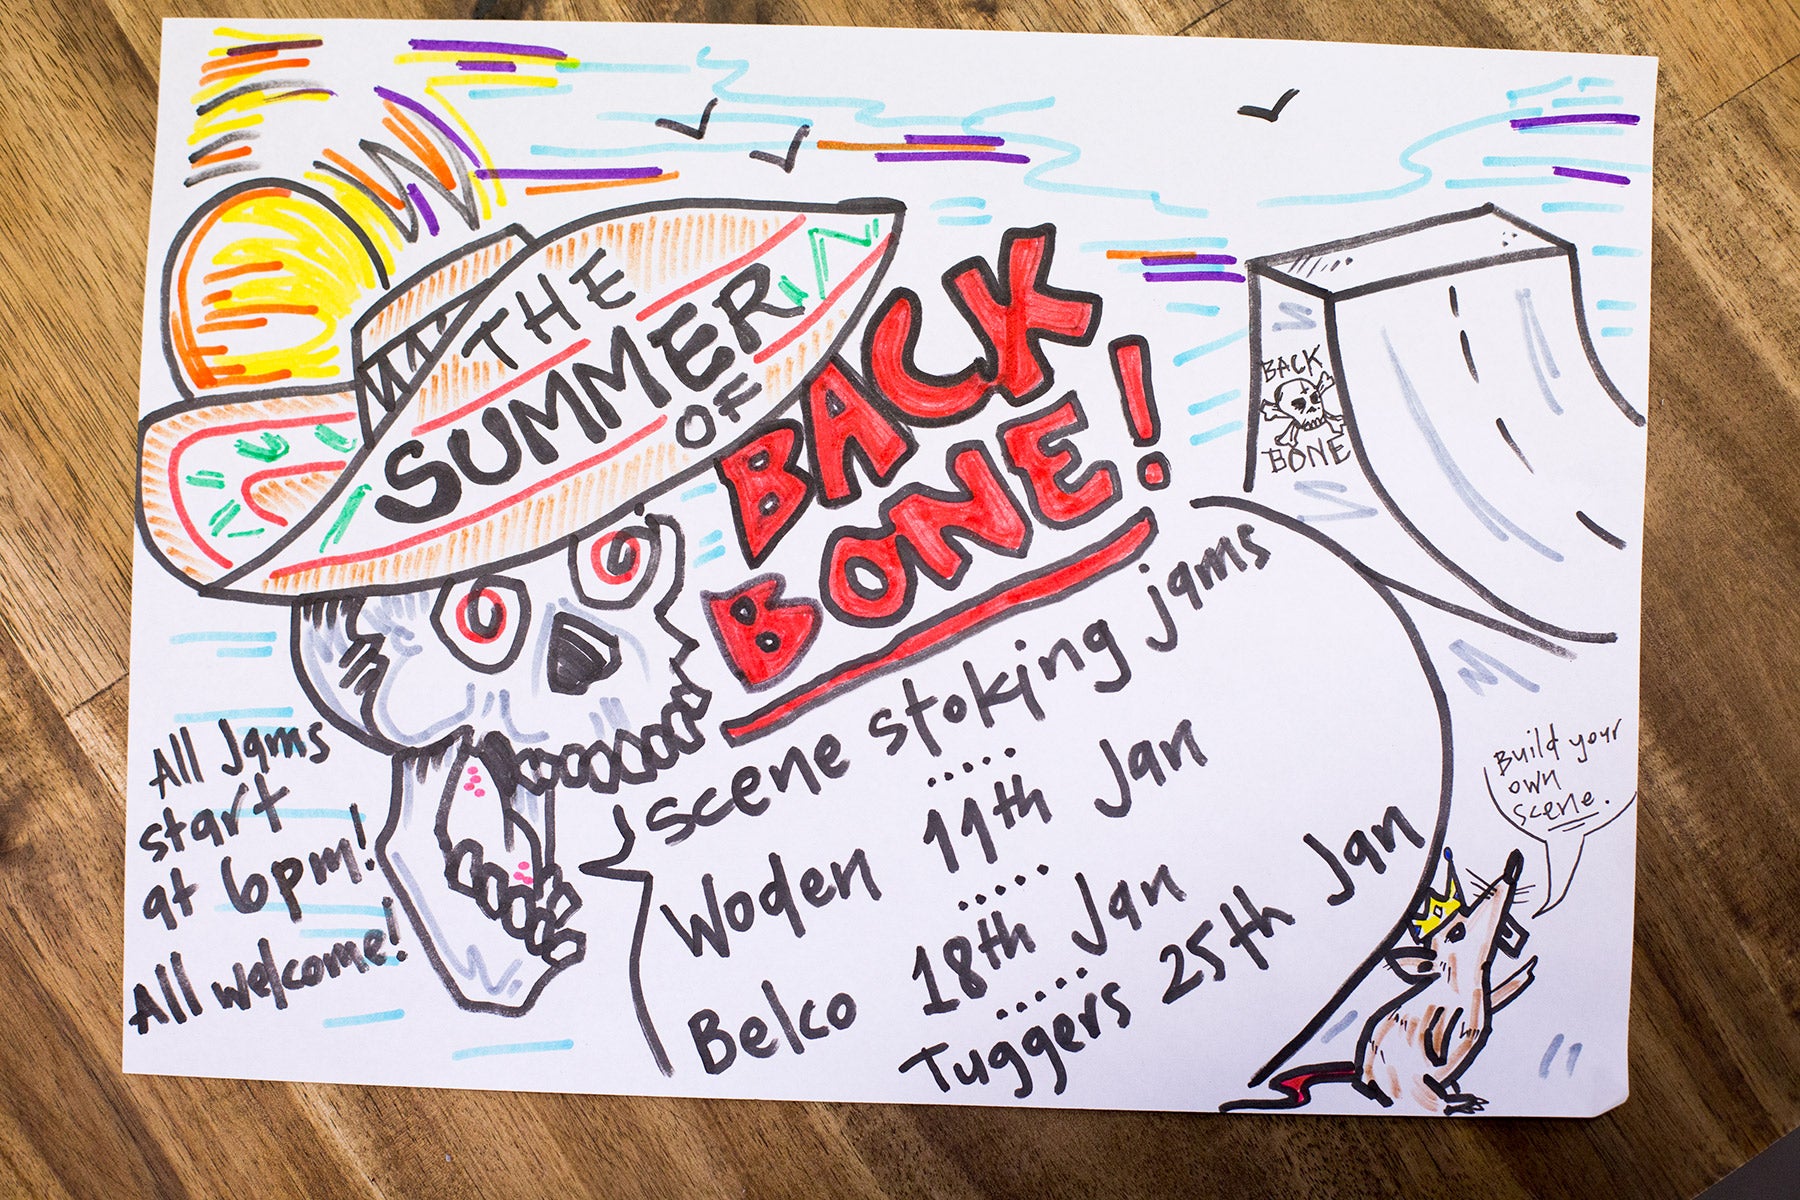 THE
SUMMER
OF
BACK
BONE!
BACK
BONE
scene stoking jams
Woden 11th Jan
Belco 18th Jan
Tuggers 25th Jan
All Jams
start
at 6pm!
All welcome!
Build your
own
scene.